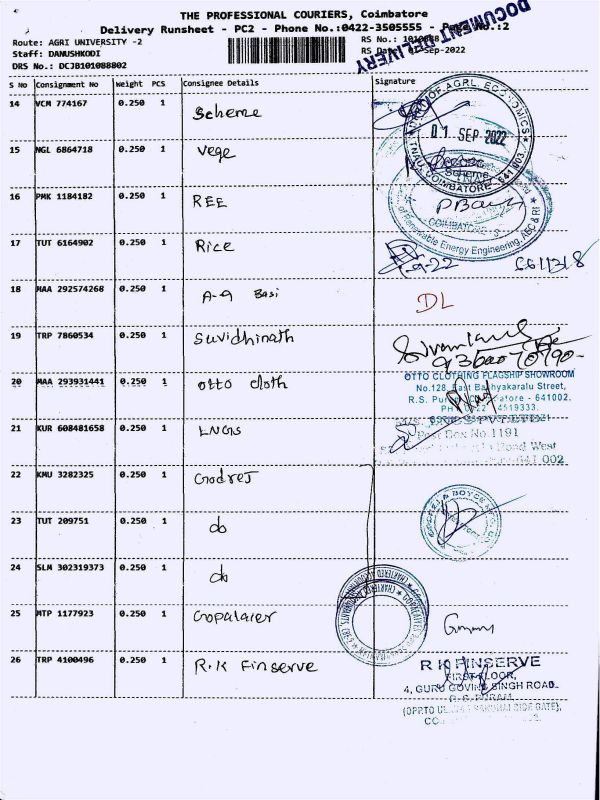 THE PROFESSIONAL COURIERS, Coimbatore
Delivery Runsheet - PC2 - Phone No.:0422-3505555 - Page No.:2
DOCUMENT DELIVERY
Route: AGRI UNIVERSITY -2
RS No.:
Staff: DANUSHKODI
RS Date: 01-Sep-2022
DRS No.: DCJB101088802
S No Consignment No Weight PCS Consignee Details Signature
14 VCM 774167 0.250 1 Scheme
OF AGRL. ECONOMICS
01 SEP 2022
Scheme
TNAU, COIMBATORE - 641 003.
15 NGL 6864718 0.250 1 Vege
16 PMK 1184182 0.250 1 REE
COIMBATORE - 3
of Renewable Energy Engineering, AEC & RI
17 TUT 6164902 0.250 1 Rice
18 MAA 292574268 0.250 1 A-9 Basi DL
19 TRP 7860534 0.250 1 Suvidhinath
20 MAA 293931441 0.250 1 Otto cloth
OTTO CLOTHING FLAGSHIP SHOWROOM
No.128, East Bashyakaralu Street,
R.S. - 641002.
4519333.
21 KUR 608481658 0.250 1 LNGS
Post Box No 1191
Road West
641 002
22 KMU 3282325 0.250 1 Godrej
GODREJ & BOYCE MFG. CO.
23 TUT 209751 0.250 1 do
24 SLM 302319373 0.250 1 do
CHARTERED ACCOUNTANTS
25 MTP 1177923 0.250 1 Gopalaier
26 TRP 4100496 0.250 1 R.K Finserve
R K FINSERVE
FIRST FLOOR,
4, GURU GOVIND SINGH ROAD
R.S. PURAM
SIDE GATE),